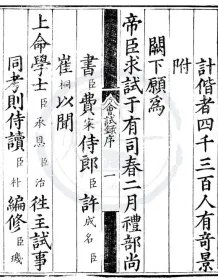 計偕者四千三百人有奇景
附
闕下願爲
帝臣求試于有司春二月禮部尚
會試錄序
一
書臣費寀侍郎臣許成名臣
崔桐以聞
上命學士臣承恩臣治徃主試事
同考則侍讀臣朴編修臣璣